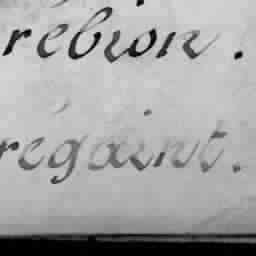 rebion.
regaint.